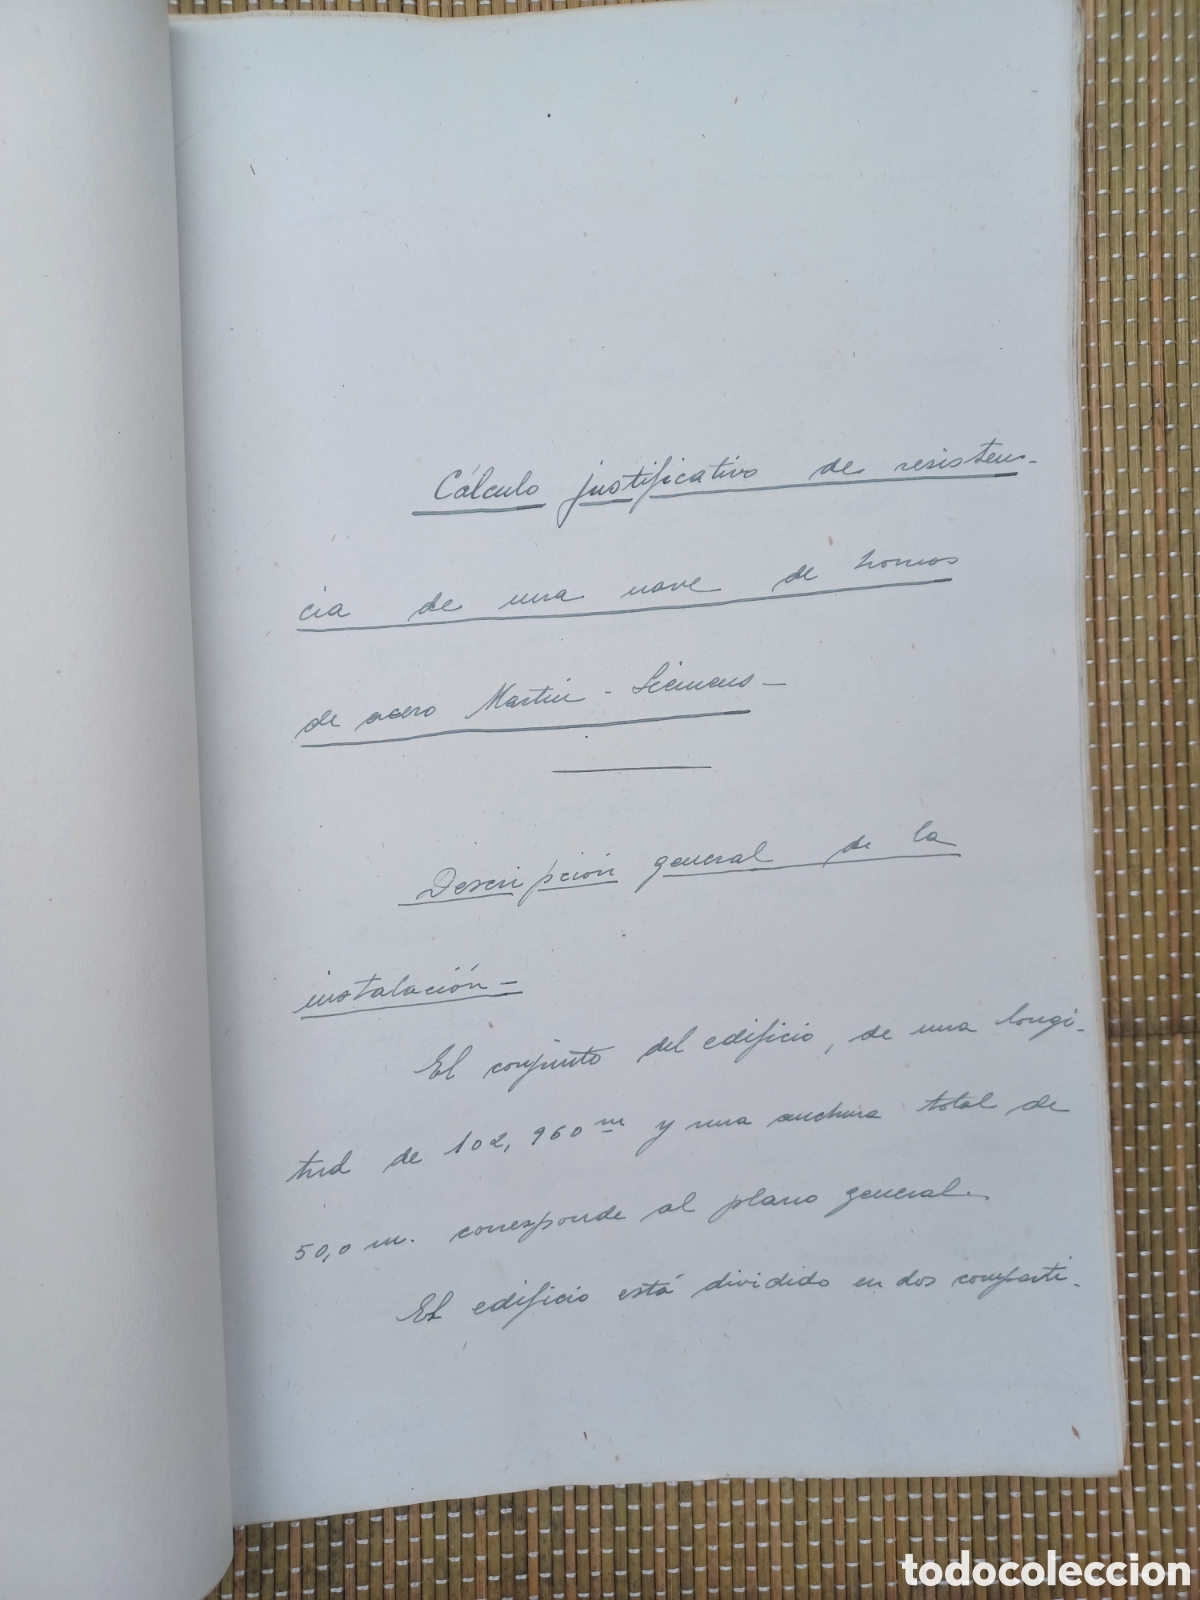 Cálculo justificativo de resisten-
cia de una nave de hornos
de acero Martin - Siemens -
Descripción general de la
instalación -
El conjunto del edificio, de una longi-
tud de 102,960 m y una anchura total de
50,0 m. corresponde al plano general.
El edificio está dividido en dos comparti-
todocoleccion